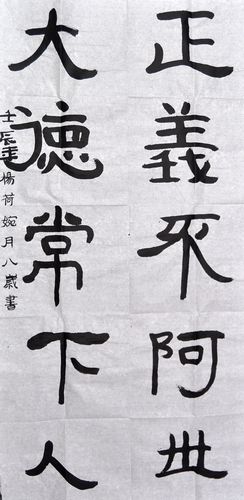 正義不阿世
大德常下人
壬辰年楊荷婉月八歲書